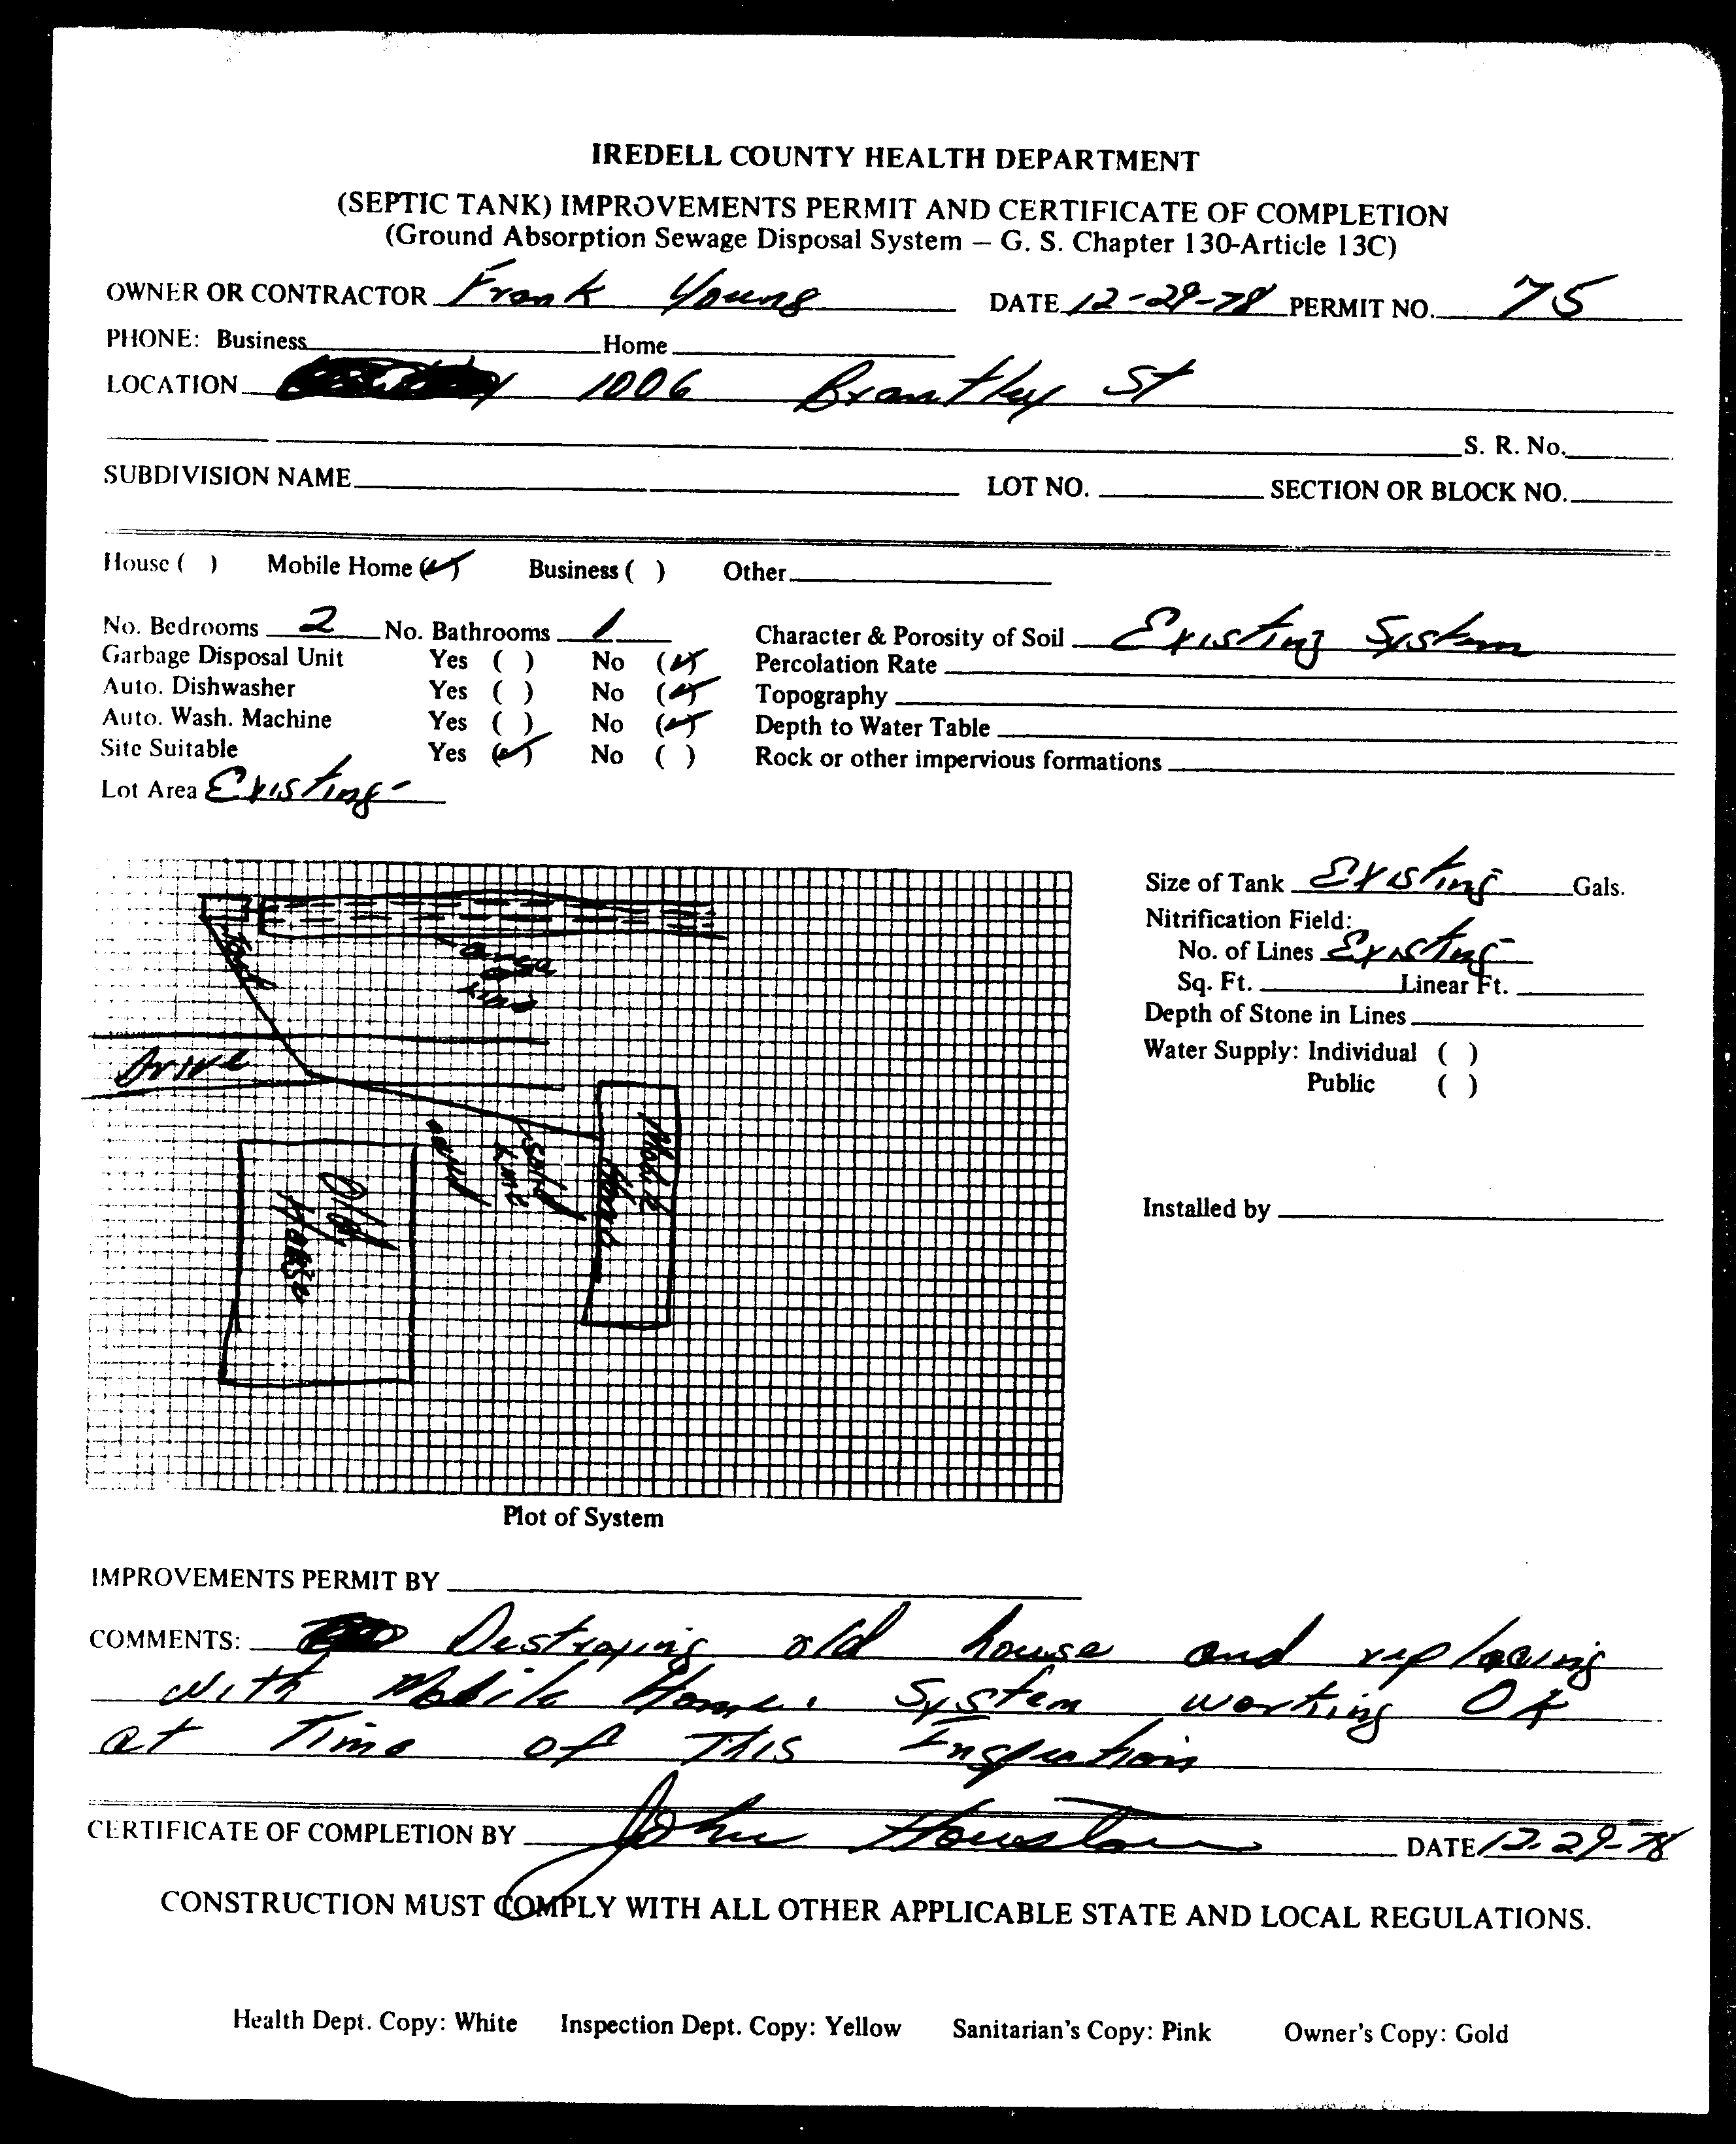 IREDELL COUNTY HEALTH DEPARTMENT
(SEPTIC TANK) IMPROVEMENTS PERMIT AND CERTIFICATE OF COMPLETION
(Ground Absorption Sewage Disposal System – G. S. Chapter 130-Article 13C)
OWNER OR CONTRACTOR Frank Young DATE 12-29-78 PERMIT NO. 75
PHONE: Business Home
LOCATION 1006 Brantley St
S. R. No.
SUBDIVISION NAME LOT NO. SECTION OR BLOCK NO.
House ( ) Mobile Home (✓) Business ( ) Other
No. Bedrooms 2 No. Bathrooms 1 Character & Porosity of Soil Existing System
Garbage Disposal Unit Yes ( ) No (✓) Percolation Rate
Auto. Dishwasher Yes ( ) No (✓) Topography
Auto. Wash. Machine Yes ( ) No (✓) Depth to Water Table
Site Suitable Yes (✓) No ( ) Rock or other impervious formations
Lot Area Existing
Size of Tank Existing Gals.
Nitrification Field:
No. of Lines Existing
Sq. Ft. Linear Ft.
Depth of Stone in Lines
Water Supply: Individual ( )
Public ( )
Installed by
Tank
Drive
Solid
Line
Mobile
Home
Old
House
Plot of System
IMPROVEMENTS PERMIT BY
COMMENTS: Destroying old house and replacing
with Mobile Home. System working OK
at Time of This Inspection
CERTIFICATE OF COMPLETION BY John Houston DATE 12-29-78
CONSTRUCTION MUST COMPLY WITH ALL OTHER APPLICABLE STATE AND LOCAL REGULATIONS.
Health Dept. Copy: White Inspection Dept. Copy: Yellow Sanitarian's Copy: Pink Owner's Copy: Gold